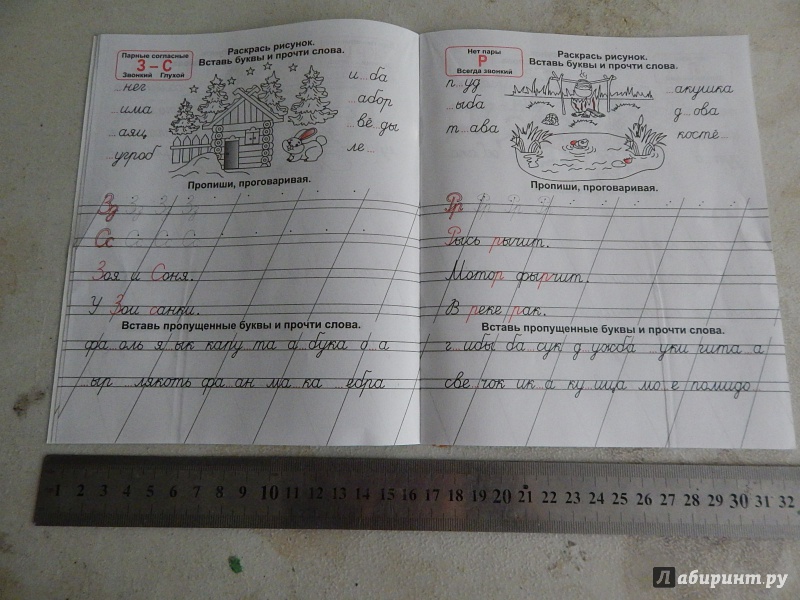 Парные согласные
З – С
Звонкий Глухой
Раскрась рисунок.
Вставь буквы и прочти слова.
...нег
...има
...аяц
...угроб
и...ба
...абор
...вё...ды
ле...
Пропиши, проговаривая.
Зз
Сс
Зоя и Соня.
У Зои санки.
Вставь пропущенные буквы и прочти слова.
фа...оль я...ык капу...та а...бука о...а
...ыр ...лякоть фа...ан ма...ка ...ебра
Нет пары
Р
Всегда звонкий
Раскрась рисунок.
Вставь буквы и прочти слова.
п...уд
...ыба
т...ава
...акушка
д...ова
костё...
Пропиши, проговаривая.
Рр
Рысь рычит.
Мотор фырчит.
В реке рак.
Вставь пропущенные буквы и прочти слова.
г...ибы ба...сук д...ужба ...уки гита...а
све...чок ик...а ку...ица мо...е помидо...
1 2 3 4 5 6 7 8 9 10 11 12 13 14 15 16 17 18 19 20 21 22 23 24 25 26 27 28 29 30 31 32
Лабиринт.ру